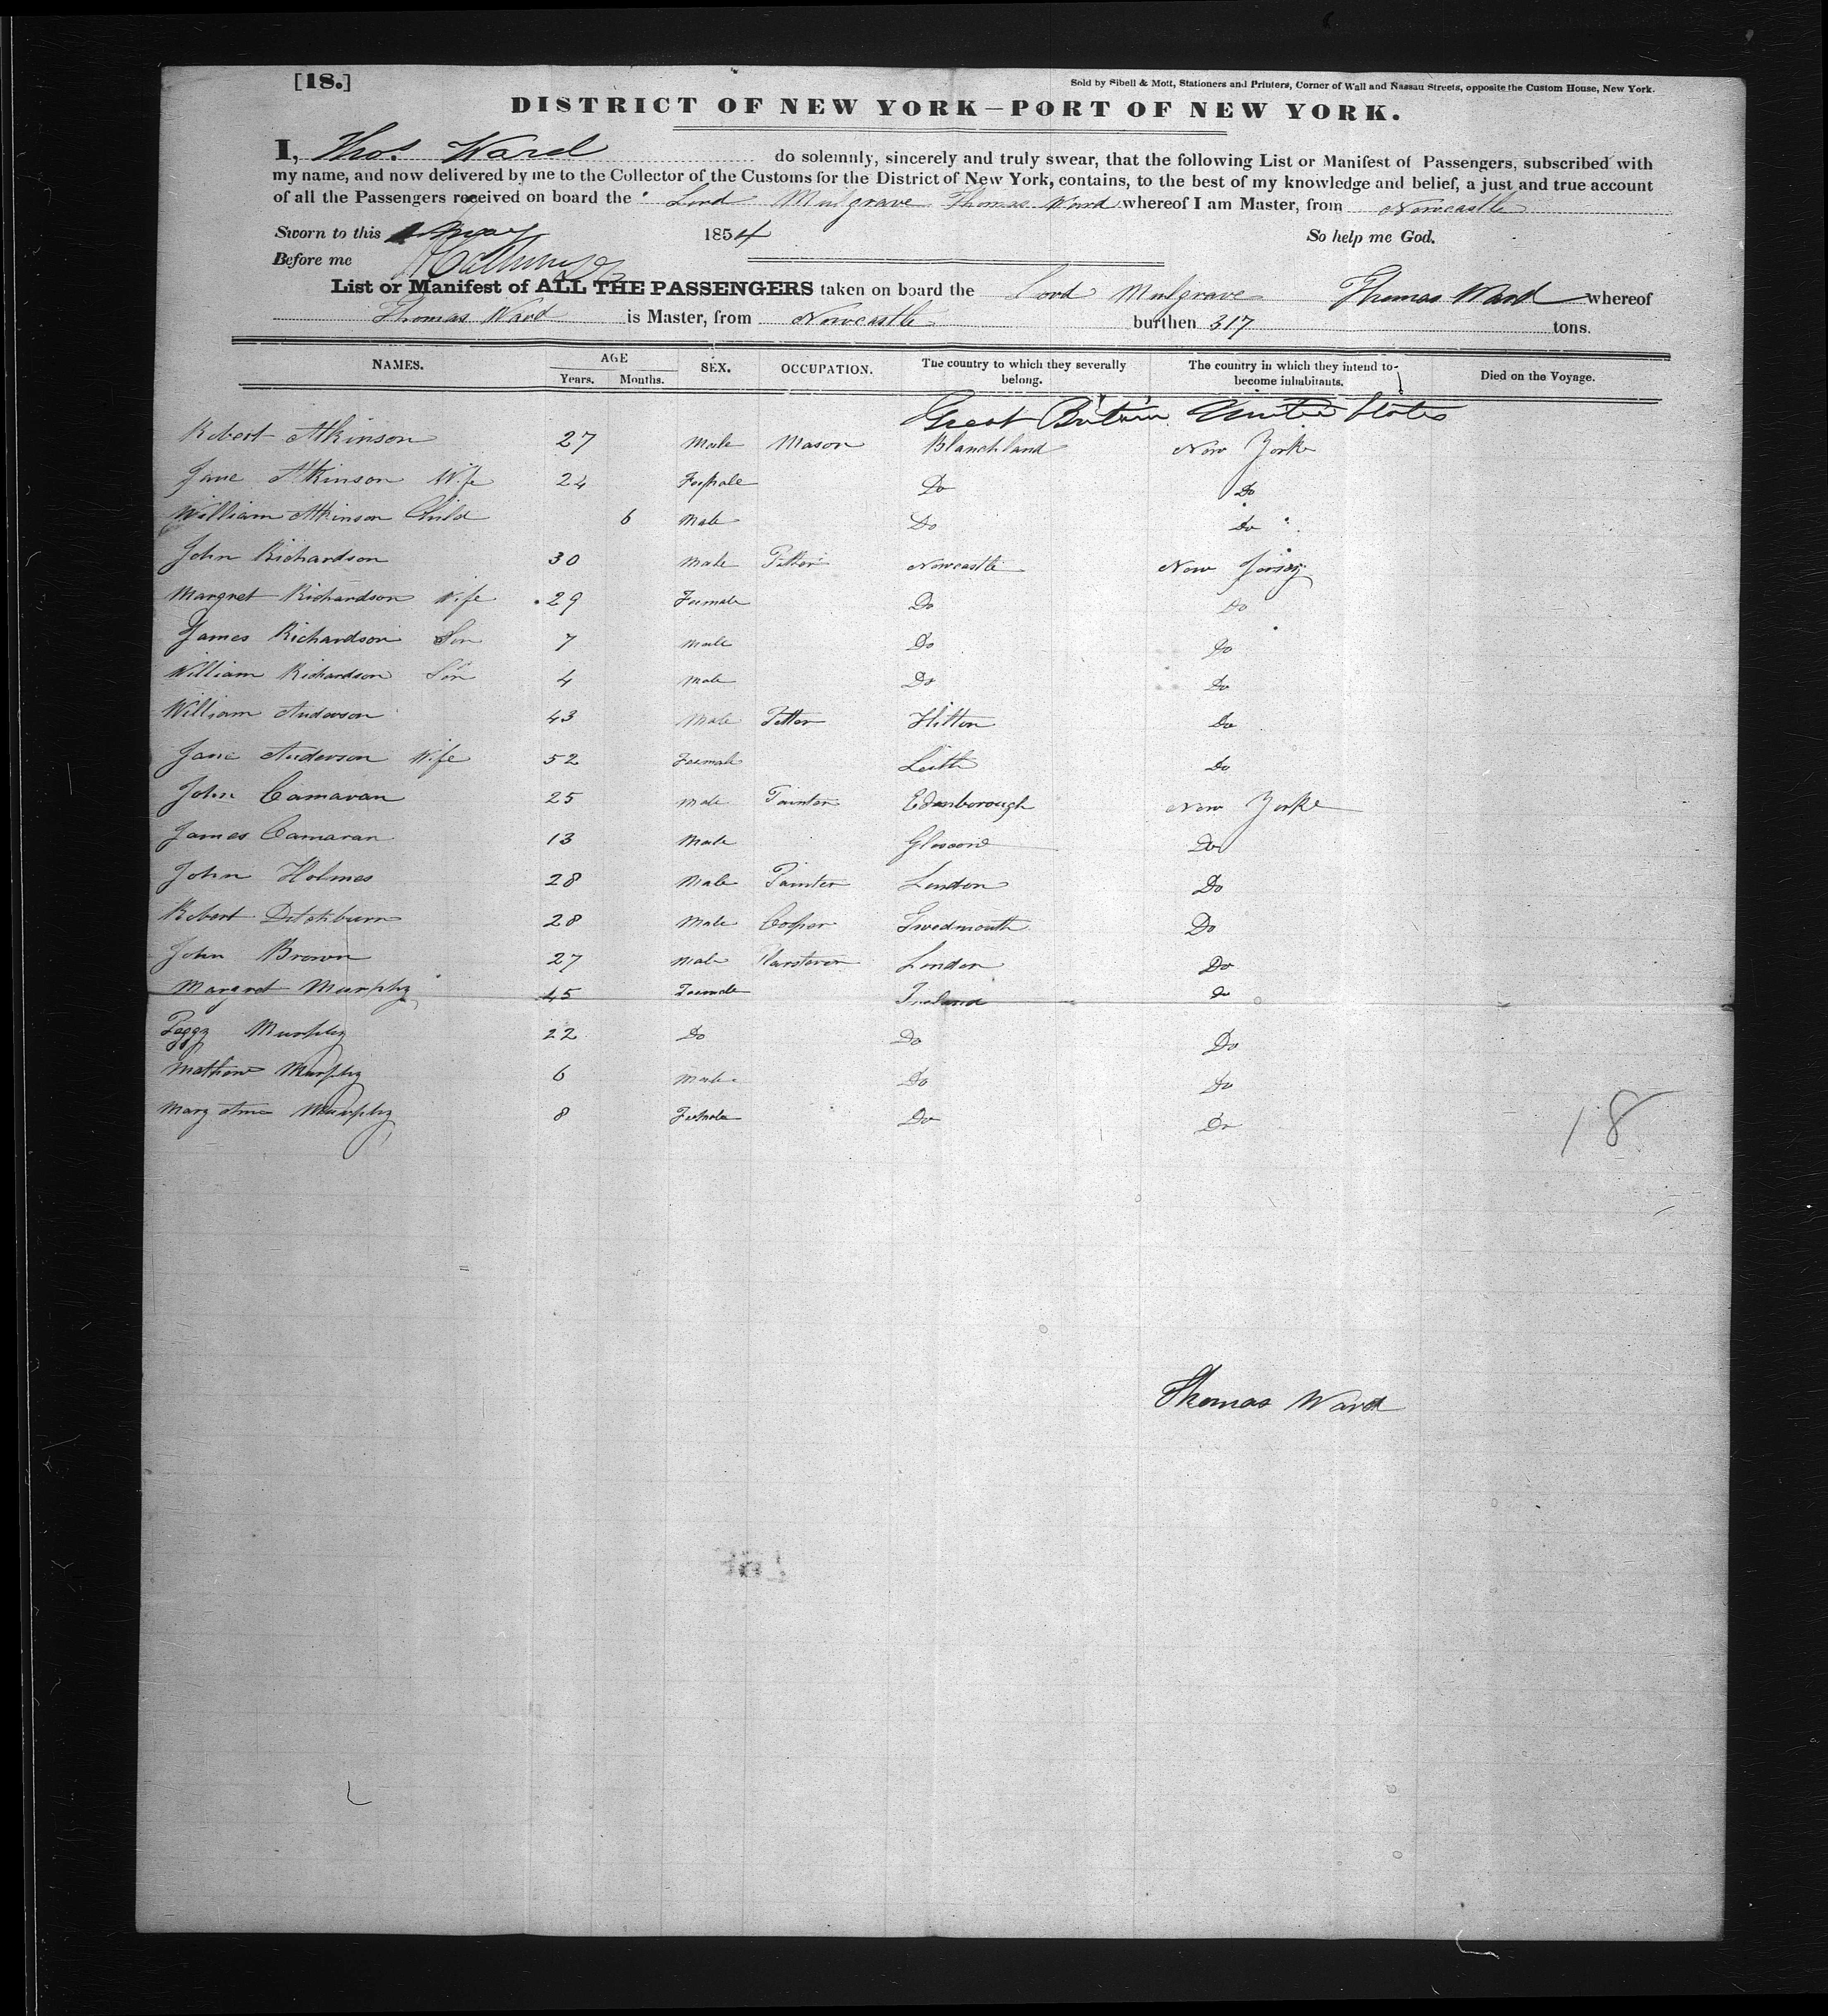 [18.]
Sold by Sibell & Mott, Stationers and Printers, Corner of Wall and Nassau Streets, opposite the Custom House, New York.
DISTRICT OF NEW YORK—PORT OF NEW YORK.
I, Thos. Ward do solemnly, sincerely and truly swear, that the following List or Manifest of Passengers, subscribed with
my name, and now delivered by me to the Collector of the Customs for the District of New York, contains, to the best of my knowledge and belief, a just and true account
of all the Passengers received on board the Lord Mulgrave Thomas Ward whereof I am Master, from Newcastle
Sworn to this May 1854 So help me God.
Before me
List or Manifest of ALL THE PASSENGERS taken on board the Lord Mulgrave Thomas Ward whereof
Thomas Ward is Master, from Newcastle burthen 317 tons.
NAMES. AGE Years. Months. SEX. OCCUPATION. The country to which they severally belong. The country in which they intend to become inhabitants. Died on the Voyage.
Great Britain United States
Robert Atkinson 27 Male Mason Blanchland New Yorke
Jane Atkinson Wife 24 Female Do Do
William Atkinson Child 6 Male Do Do
John Richardson 30 Male Fitter Newcastle New Jersey
Margret Richardson Wife 29 Feemale Do Do
James Richardson Son 7 Male Do Do
William Richardson Son 4 Male Do Do
William Anderson 43 Male Fitter Hitton Do
Jane Anderson Wife 52 Feemale Leith Do
John Camaran 25 Male Painter Edenborough New Yorke
James Camaran 13 Male Glascow Do
John Holmes 28 Male Painter London Do
Robert Ditchburn 28 Male Cooper Twedmouth Do
John Brown 27 Male Plarsterer London Do
Margret Murphy 45 Feemale Ireland Do
Peggy Murphy 22 Do Do Do
Mathew Murphy 6 Male Do Do
Mary Ann Murphy 8 Female Do Do
18
Thomas Ward